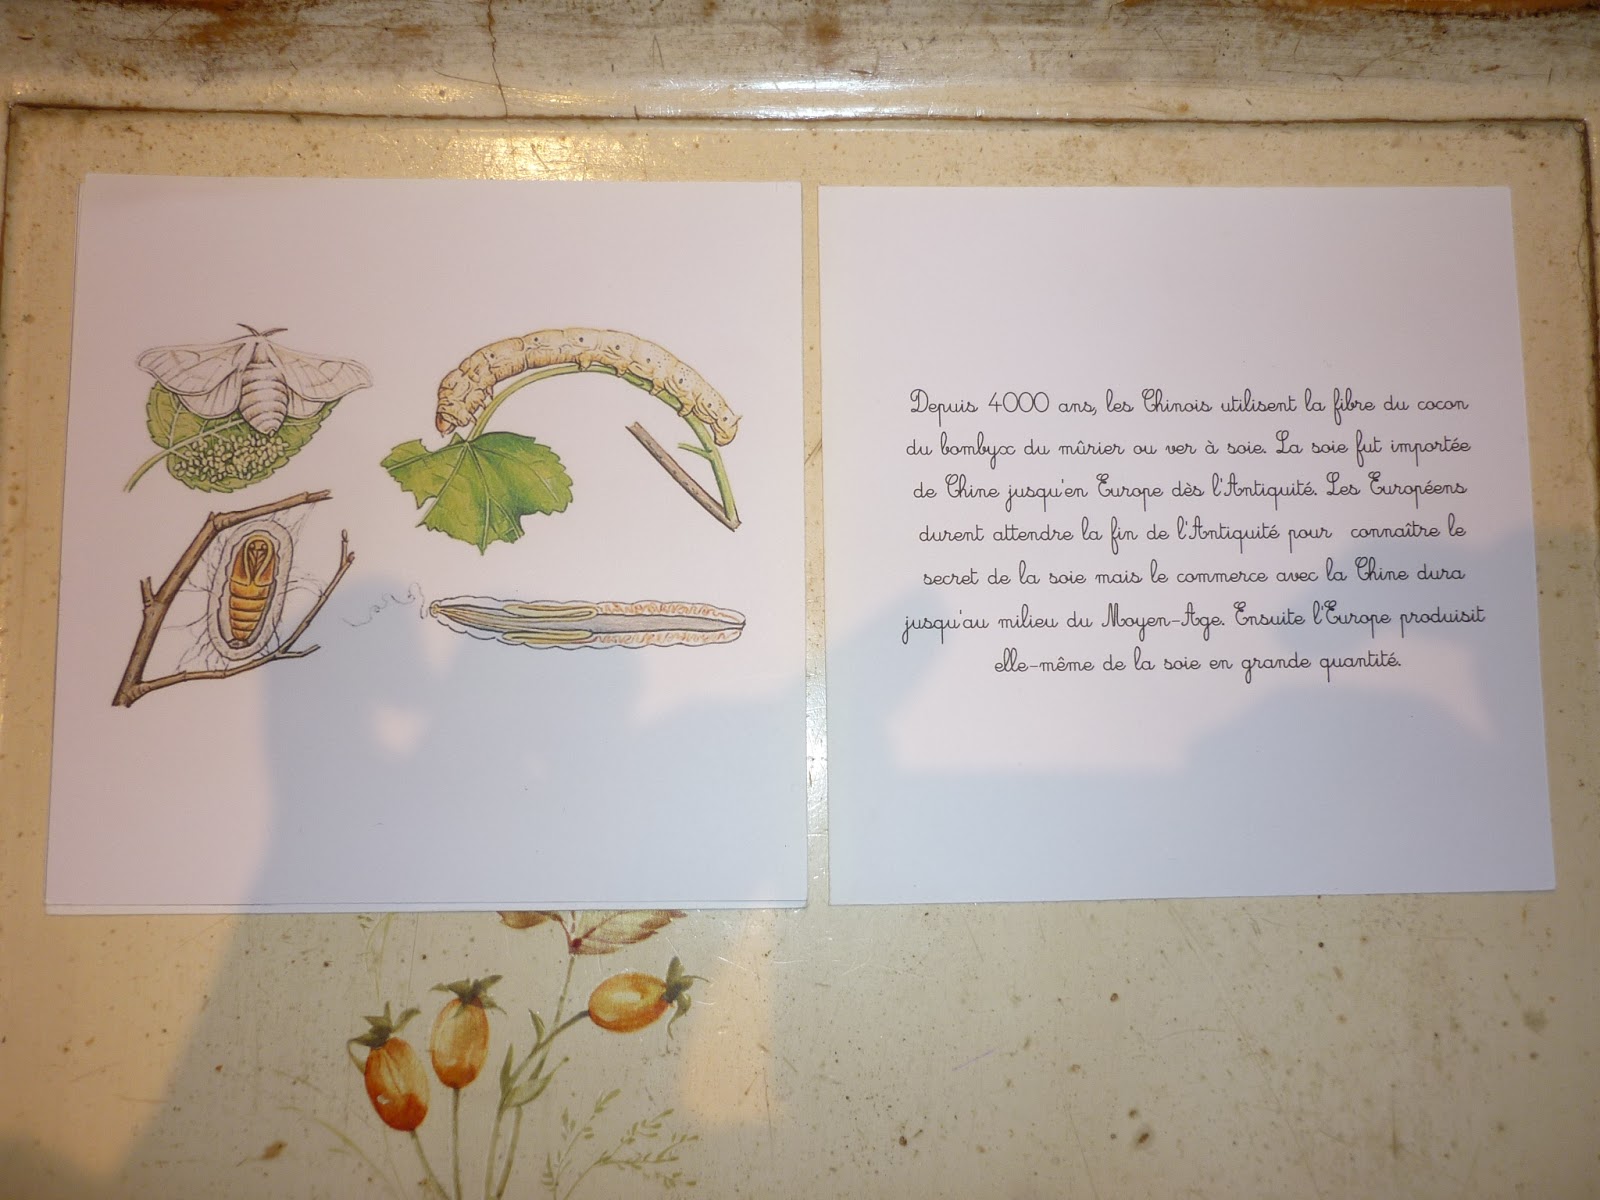 Depuis 4000 ans, les Chinois utilisent la fibre du cocon
du bombyx du mûrier ou ver à soie. La soie fut importée
de Chine jusqu'en Europe dès l'Antiquité. Les Européens
durent attendre la fin de l'Antiquité pour connaître le
secret de la soie mais le commerce avec la Chine dura
jusqu'au milieu du Moyen-Age. Ensuite l'Europe produisit
elle-même de la soie en grande quantité.